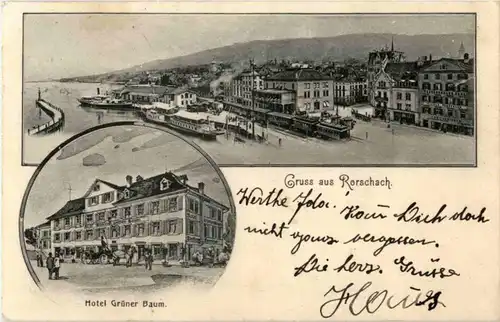 Gruss aus Rorschach.
Werthe Ida. Kann Dich doch
nicht ganz vergessen.
Die herz. Grüsse
Hans
Hotel Grüner Baum.